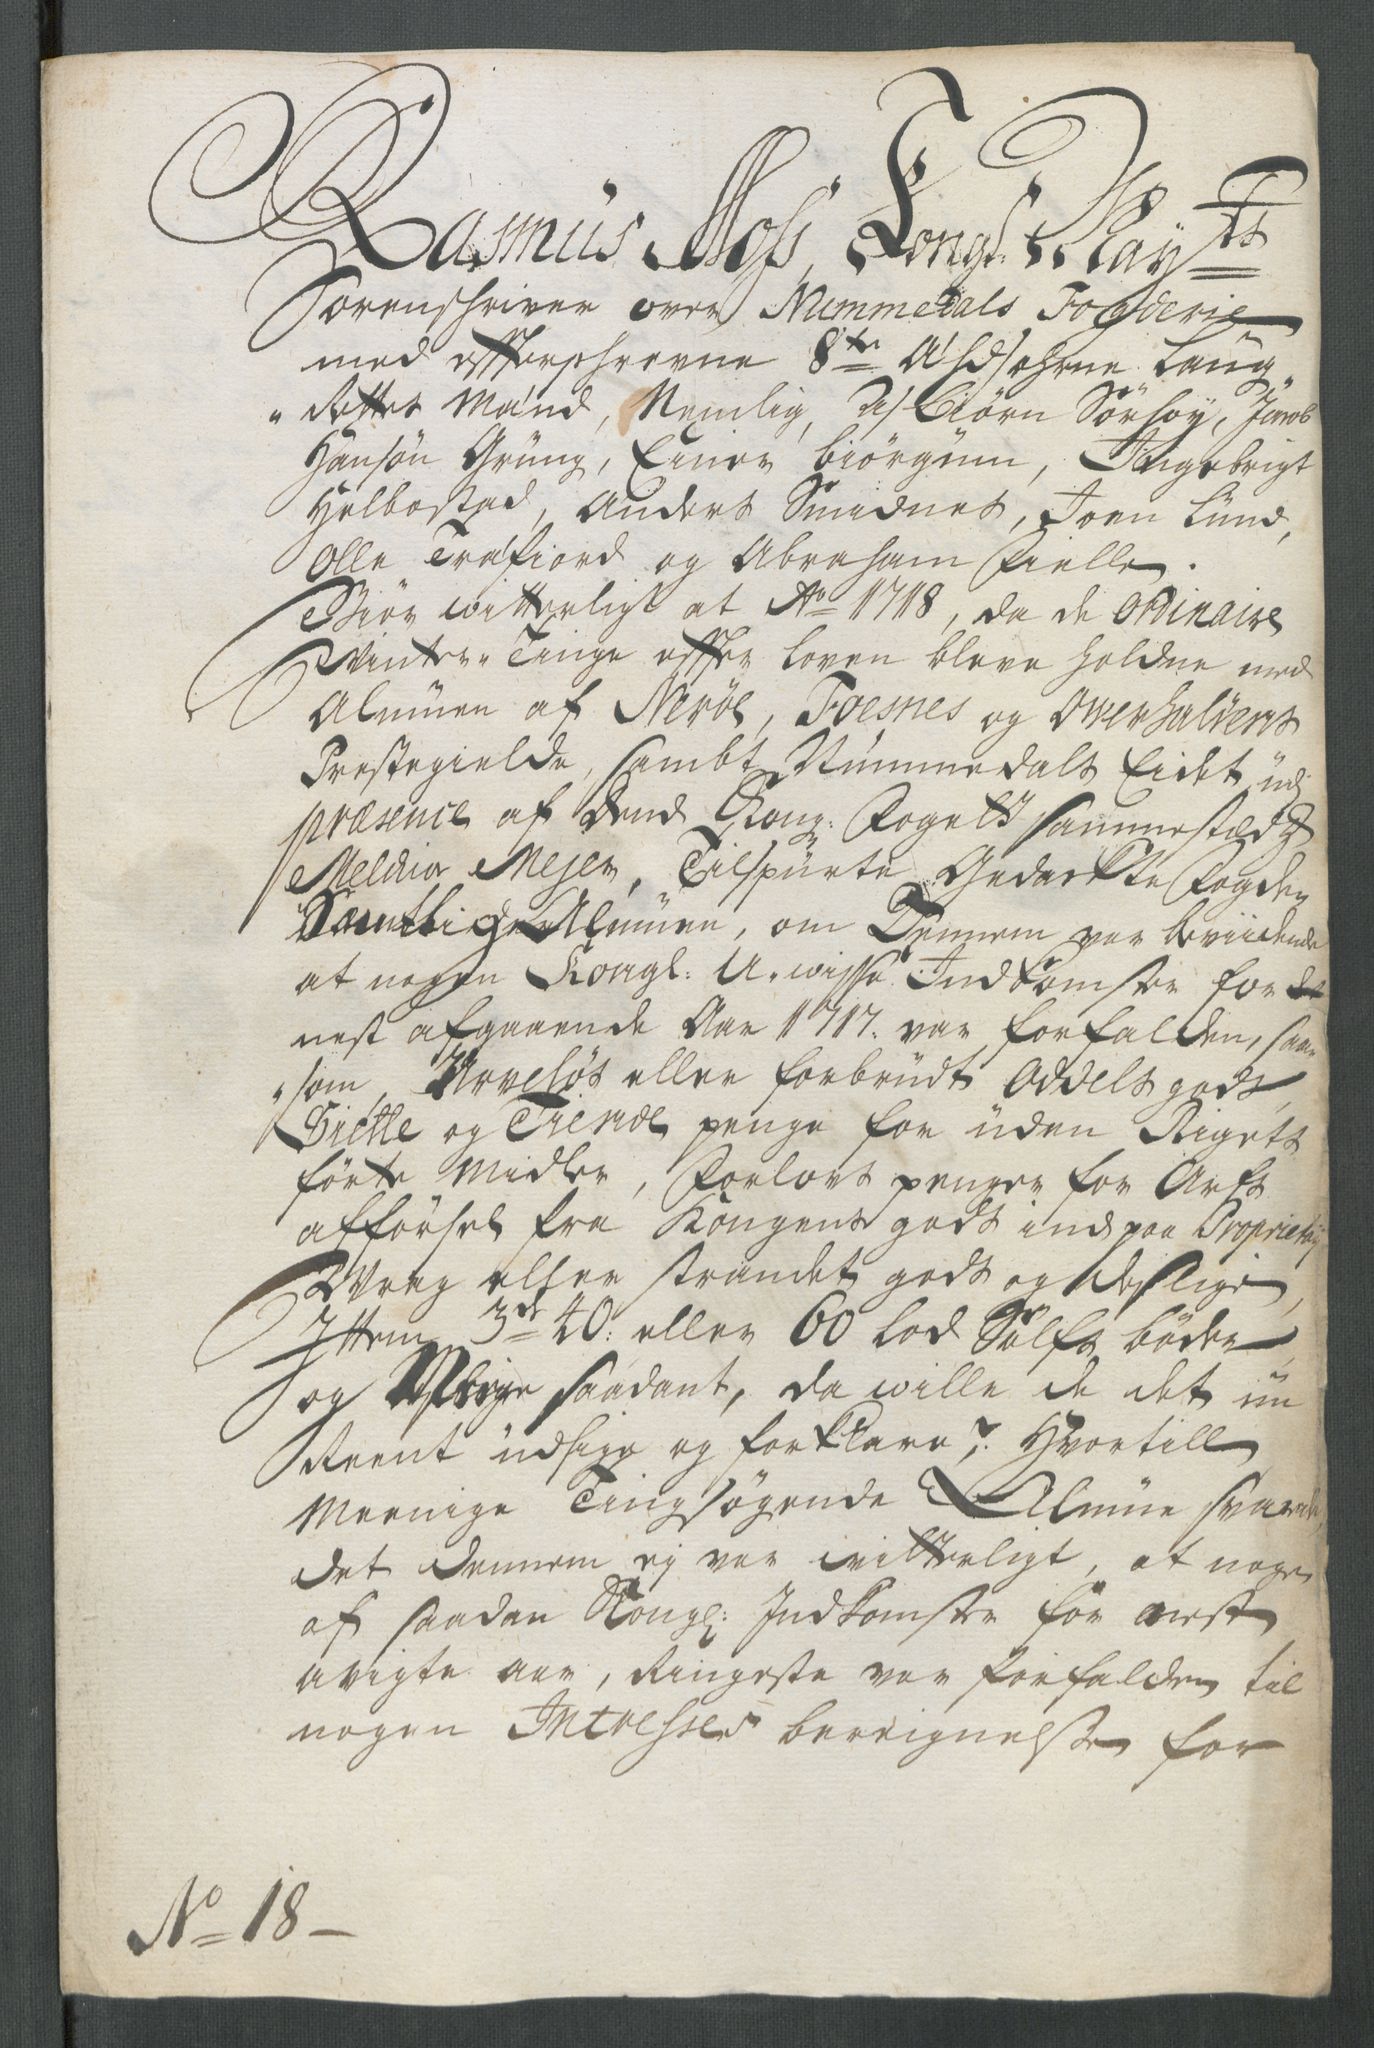 Rasmus Moss, Kongl: Mayts
Sorenschriver over Nummedals Fogderie
med effterschrevne 8te Eedsohrne Laug-
"Rettes Mænd, Nemlig, Biörn Sörhoÿ, Jacob
Hansön Grüng, Einer biörgüm, Ingebrigt
Helbostad, Anders Smidnes, Joen Lünd,
Olle Trafiord og Abraham Fielle.
Giör witterligt at Ao 1718, da de Ordinaire
Winter-Tinge effter Loven bleve holdne med
Almüen af Neröe, Foesnes og Overhaldens
Prestegielde, sambt Nummedals Eidet üdj
præsence af Dend Kong: Fogett sammestædz
Melchior Mejer, Tilspurte Gedachte Fogden
Samtlige Almüen, om Dennem var beviidende
at nogen Kongl: U-wisse Indkomster for de
nest afgaaende Aar 1717. var forfalden, saa-
"som, Arvelös eller forbrüdt Oddels gods
Siette og Tiende penge for üden Rigets
förte Midler, Forlovs penger for Arfs
afförsel fra Kongens gods ind paa Proprietarij
Wrag eller strandet gods og deslige,
Ittem 3de 40: eller 60 Lod Sölfs böder,
og Meere saadant, da wille de det nü
Reent üdsige og forklare?. Hvortill
Meenige Tingsögende Almüe svarede,
det dennem ej var witterligt, at nogen
af saadan Kongl: Indkomster for nest
avigte aar, Ringeste var forfalden til
nogen Intresses bereignelse for
No 18